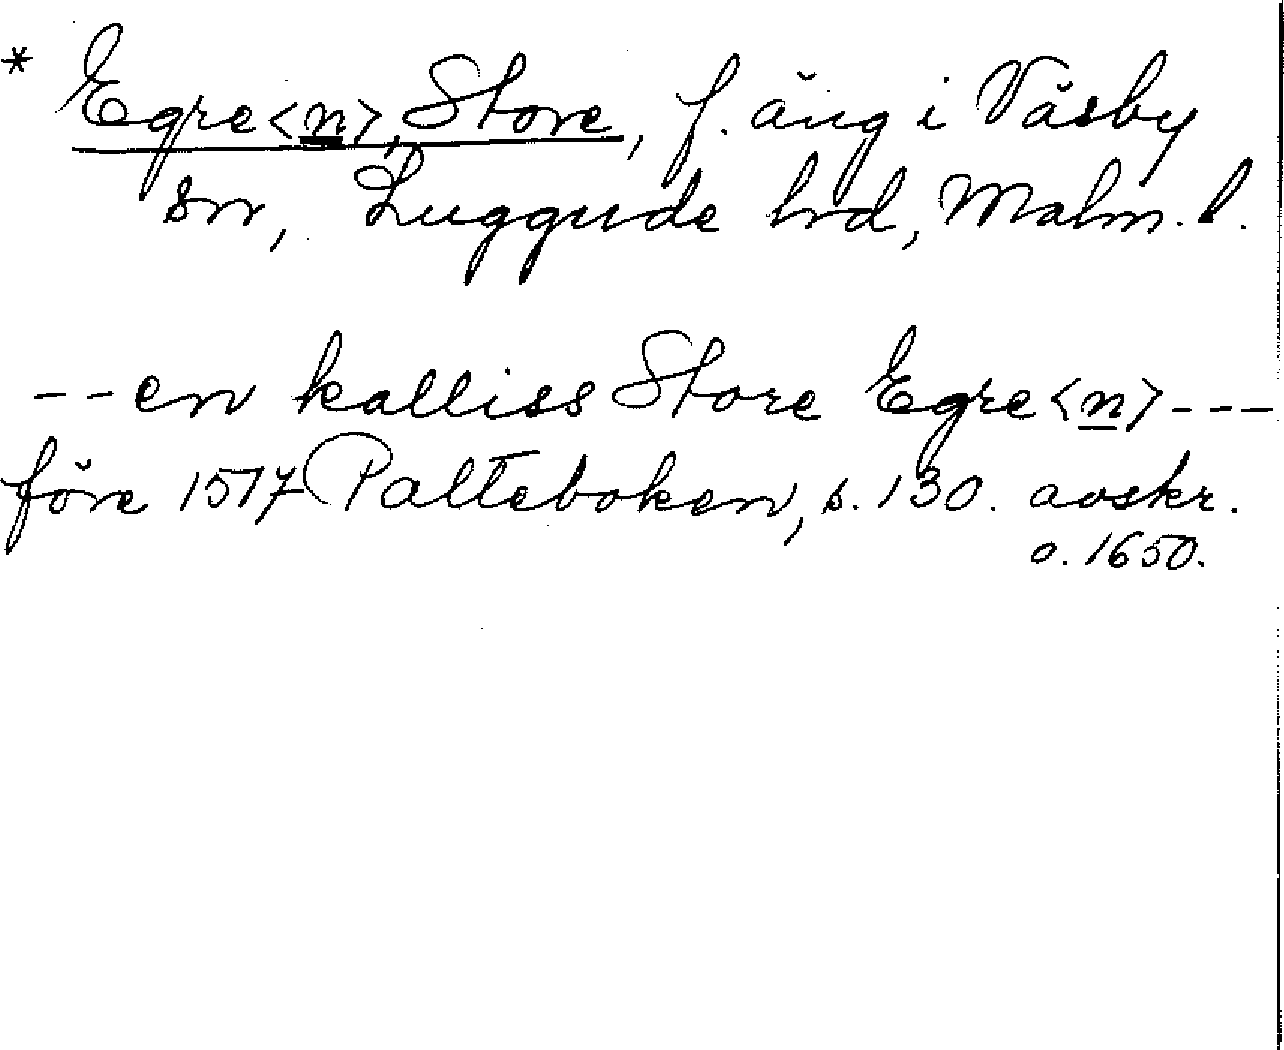 * Egre<n>, Store, f. äng i Väsby
sn, Luggude hrd, Malm. l.
--en kalliss Store Egre<n>---
före 1517 Palteboken, s. 130. avskr.
o. 1650.